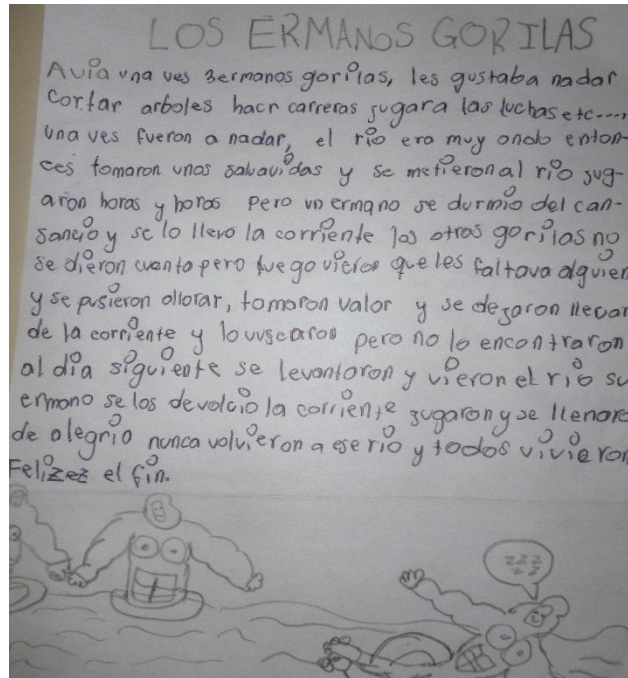 LOS ERMANOS GORILAS
Avia una ves 3ermanos gorilas, les gustaba nadar
cortar arboles hacr carreras jugara las luchas etc....,
una ves fueron a nadar, el río era muy ondo enton-
ces tomaron unos salvavidas y se metieron al río jug-
aron horas y horas Pero un ermano se durmio del can-
sancio y se lo llevo la corriente los otros gorilas no
se dieron cuenta pero luego vieron que les faltava alguien
y se pusieron allorar, tomaron valor y se dejaron llevar
de la corriente y lo vuscaron pero no lo encontraron
al día siguiente se levantaron y vieron el río su
ermano se los devolvio la corriente jugaron y se llenaro
de alegria nunca volvieron a ese río y todos vivieron
Felizez el fin.
zzz
zz